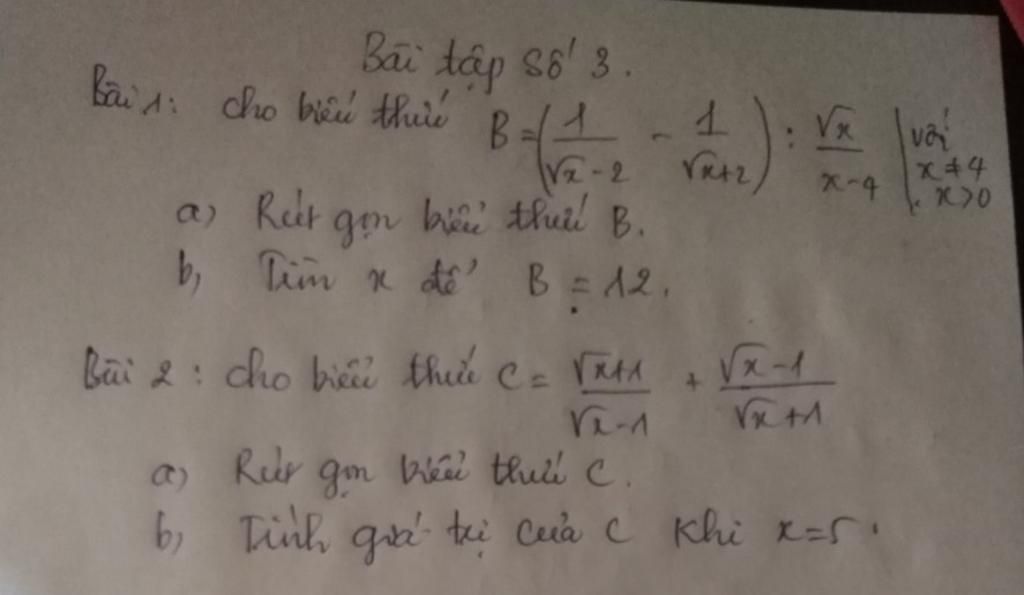 Bài tập số 3.
Bài 1: cho biểu thức B = (1/(√x-2) - 1/(√x+2)) : √x/(x-4) | với x≠4 x>0
a) Rút gọn biểu thức B.
b, Tìm x để B = 12.
Bài 2: cho biểu thức C = (√x+1)/(√x-1) + (√x-1)/(√x+1)
a) Rút gọn biểu thức C.
b, Tính giá trị của C khi x=5.